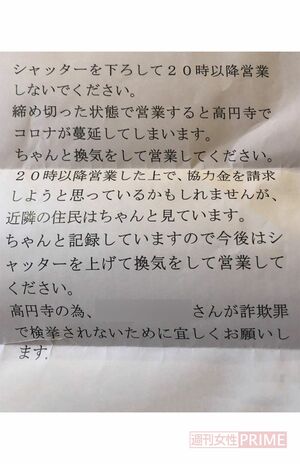 シャッターを下ろして２０時以降営業
しないでください。
締め切った状態で営業すると高円寺で
コロナが蔓延してしまいます。
ちゃんと換気をして営業してください。
２０時以降営業した上で、協力金を請求
しようと思っているかもしれませんが、
近隣の住民はちゃんと見ています。
ちゃんと記録していますので今後はシ
ャッターを上げて換気をして営業して
ください。
高円寺の為、 さんが詐欺罪
で検挙されないために宜しくお願いし
ます.
週刊女性PRIME